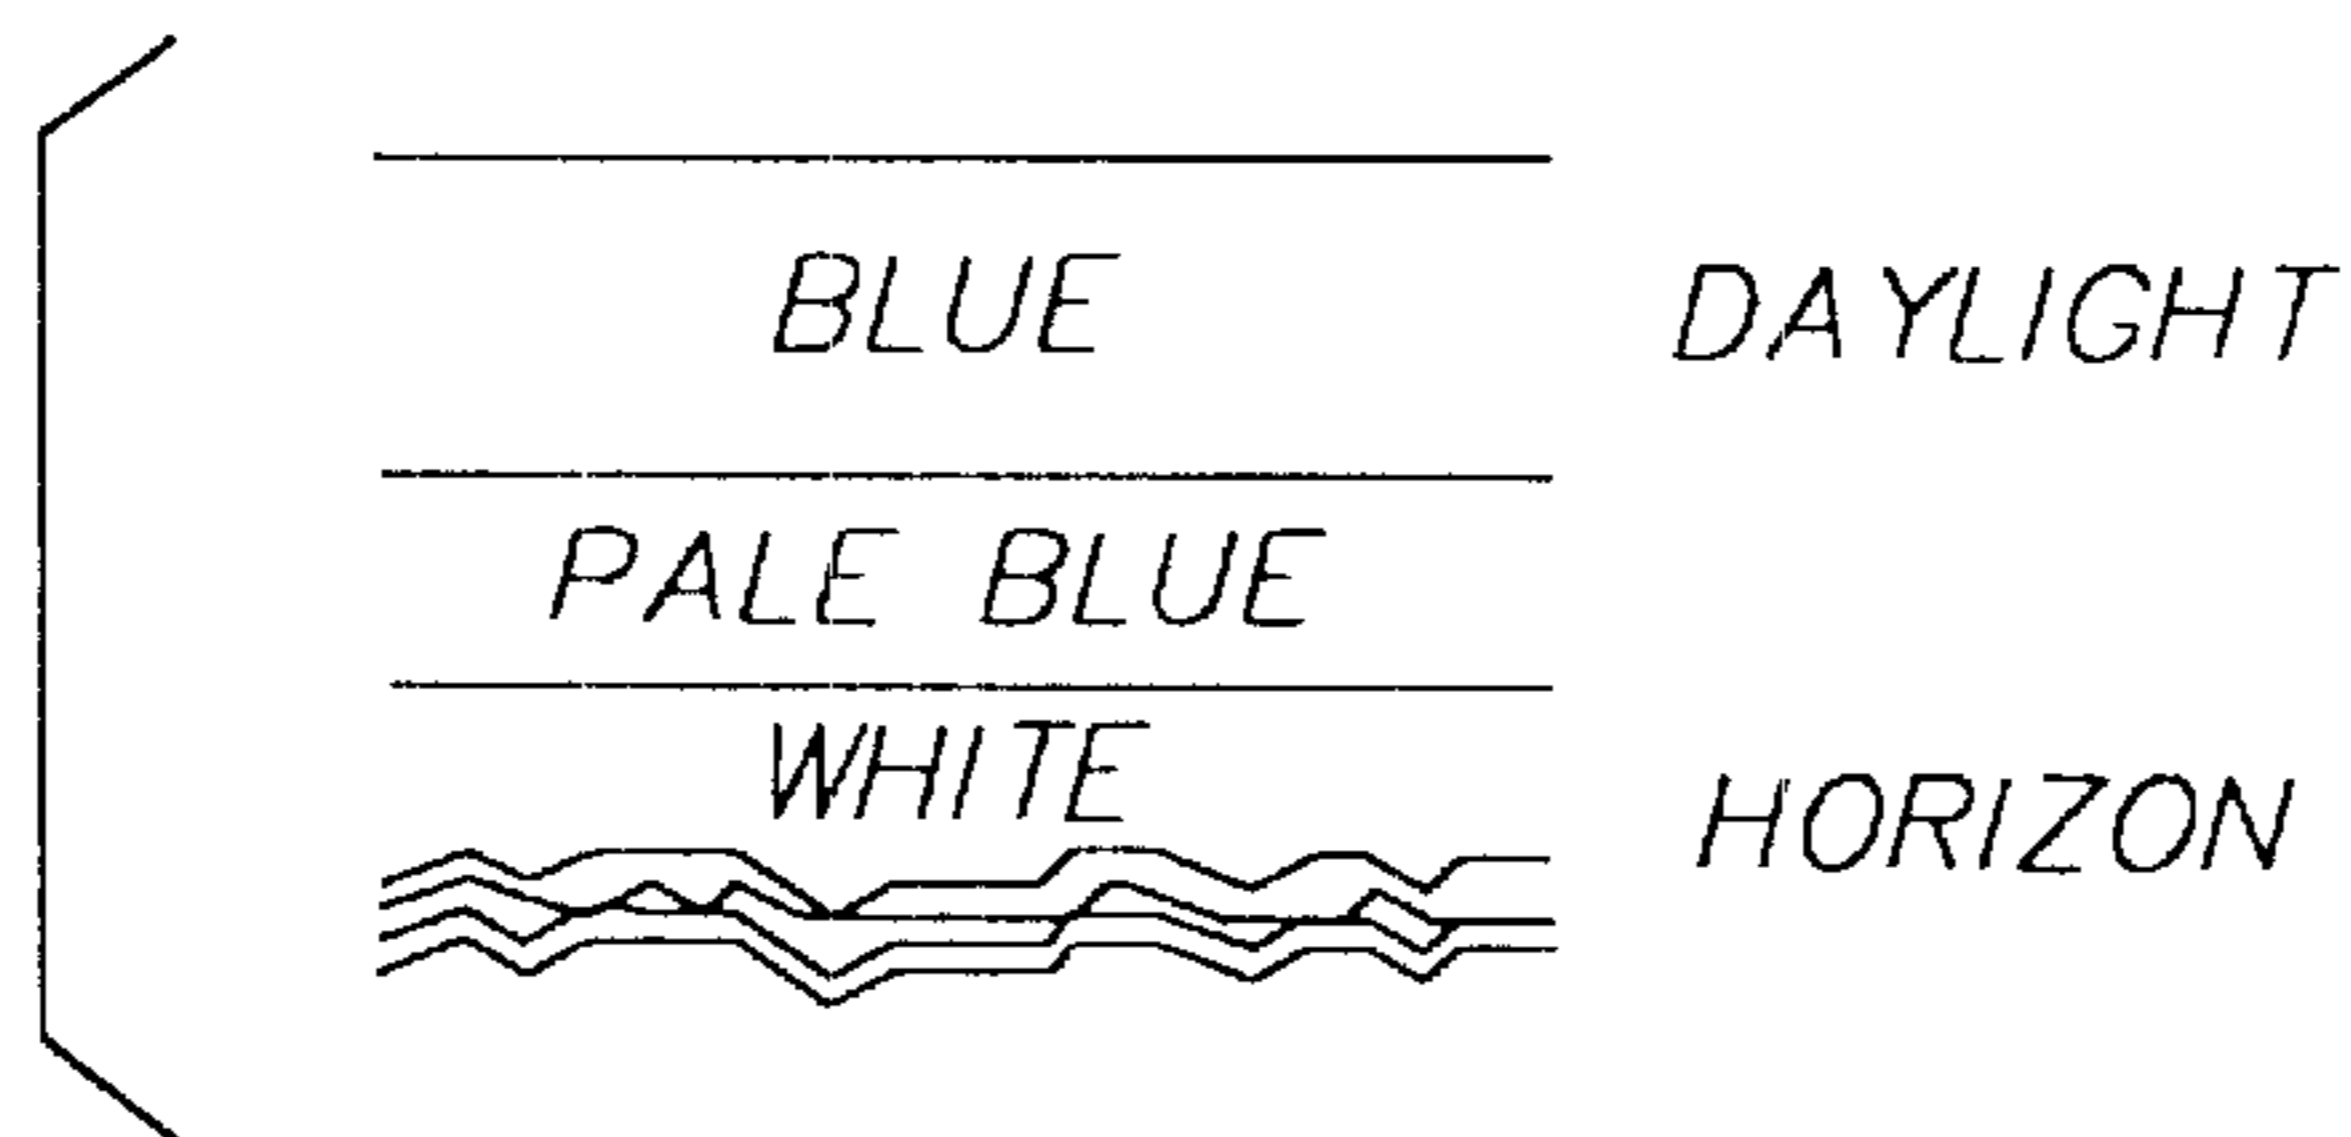 BLUE DAYLIGHT
PALE BLUE
WHITE
HORIZON